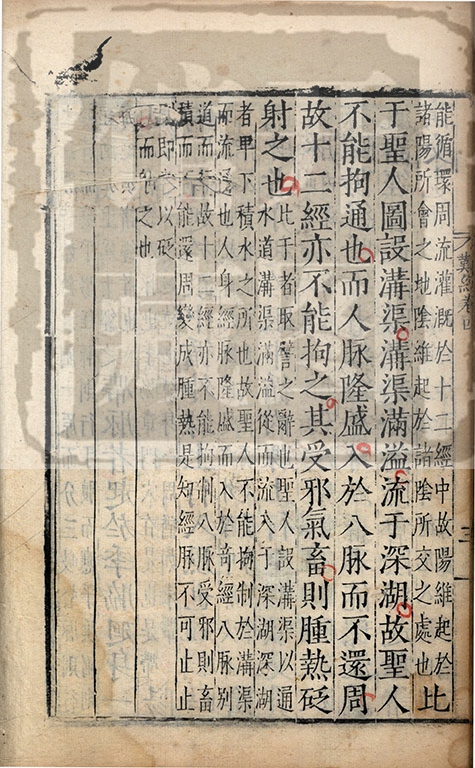 能循環周流灌溉於十二經中故陽維起於
諸陽所會之地陰維起於諸陰所交之處也
比
于聖人圖設溝渠溝渠滿溢流于深湖故聖人
不能拘通也而人脉隆盛入於八脉而不還周
故十二經亦不能拘之其受邪氣畜則腫熱砭
射之也
比于者取譬之辭也聖人設溝渠以通
水道溝渠滿溢從而流入于深湖深湖
者卑下積水之所也故聖人不能拘制於溝渠
而流通也人身經脉隆盛而入於奇經八脉別
道而行故十二經亦不能拘制八脉受邪則畜
積而不能還周變成腫熱是知經脉不可止止
即以砭
而射之也